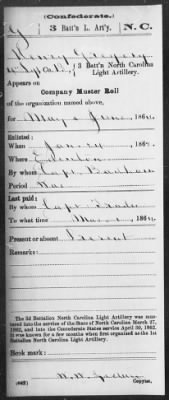 (Confederate.)
G 3 Batt'n L. Art'y. N. C.
Henry Gregory
, 3 Batt'n North Carolina
Light Artillery.
Appears on
Company Muster Roll
of the organization named above,
for May & June, 1864.
Enlisted:
When Jan 24, 186
Where Edenton
By whom Capt. Badham
Period War
Last paid:
By whom Capt.
To what time , 186
Present or absent Present
Remarks:
The 3d Battalion North Carolina Light Artillery was mustered into the service of the State of North Carolina March 27,
1862, and into the Confederate States service April 30, 1862.
It was known for a few months when first organized as the 1st
Battalion North Carolina Light Artillery.
Book mark:
(642)
Copyist.